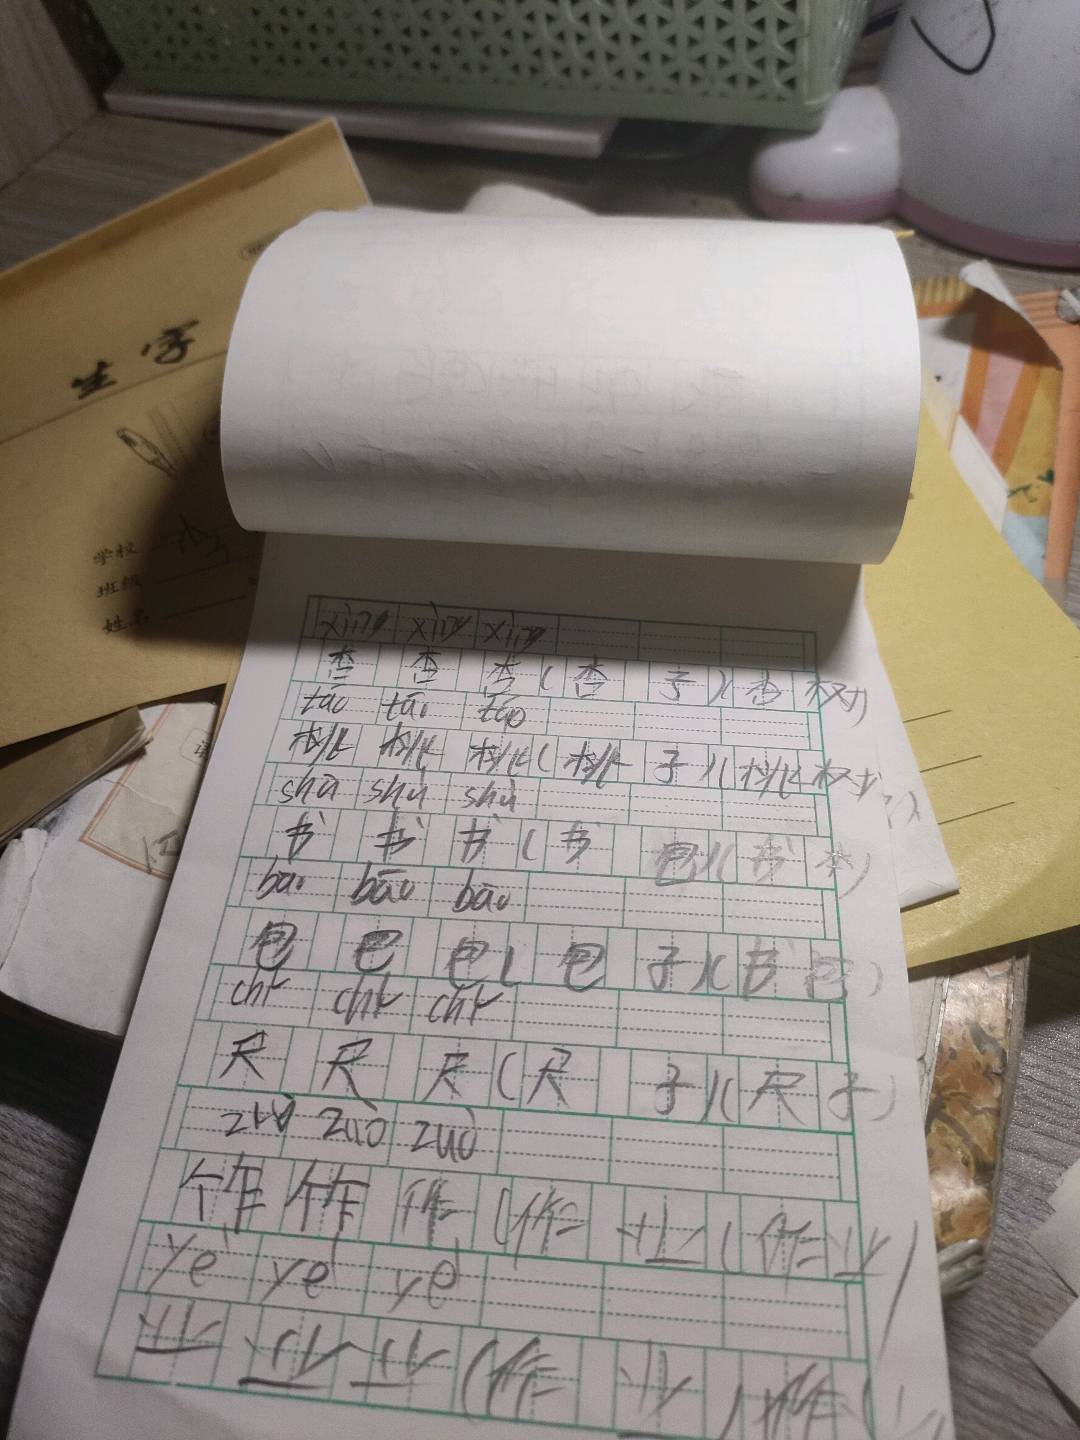 生字
学校
班级
姓名
xìng xìng xìng
杏 杏 杏 (杏 子) (杏 树)
táo táo táo
桃 桃 桃 (桃 子) (桃 树)
shū shū shū
书 书 书 (书 包) (书 本)
bāo bāo bāo
包 包 包 (包 子) (书 包)
chǐ chǐ chǐ
尺 尺 尺 (尺 子) (尺 子)
zuò zuò zuò
作 作 作 (作 业) (作 业)
yè yè yè
业 业 业 (作 业) (作 业)